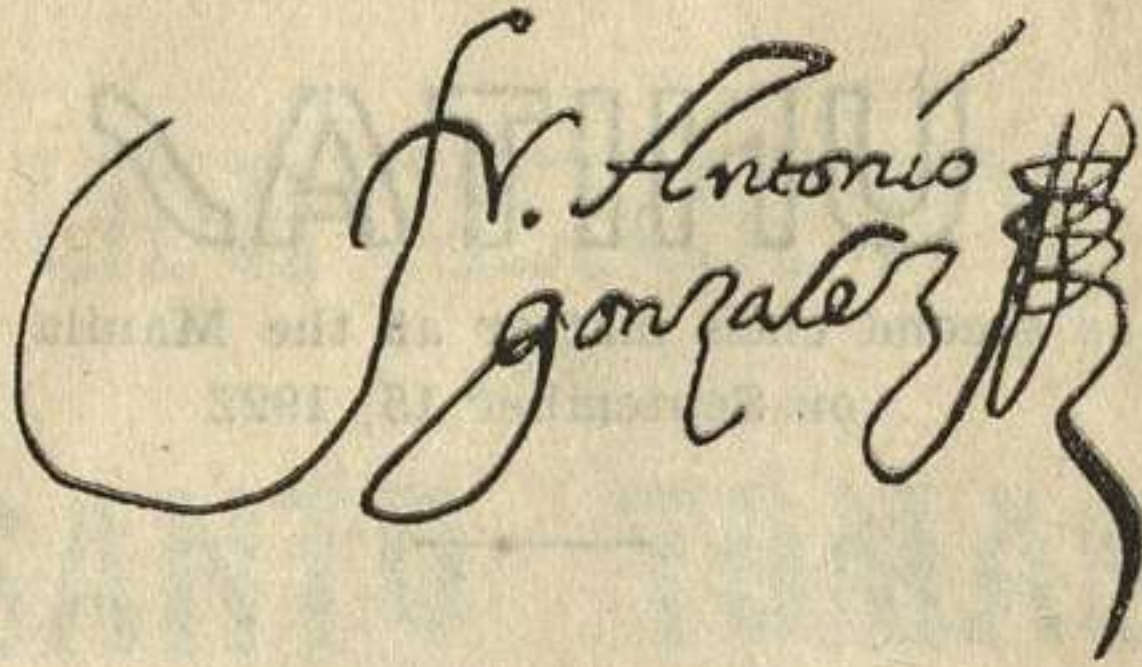 Fr. Antonio
gonzalez